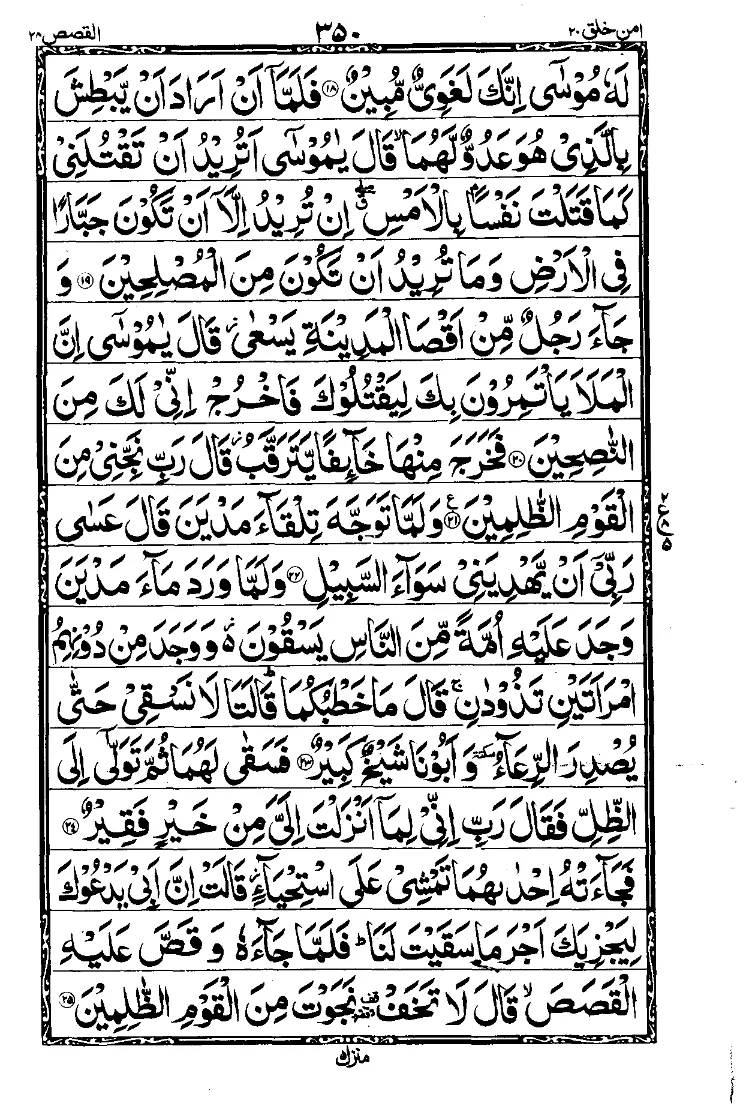 امن خلق ٢٠
٣٥٠
القصص ٢٨
لَهٗ مُوْسٰۤى اِنَّكَ لَغَوِىٌّ مُّبِيْنٌ ۝١٨ فَلَمَّاۤ اَنْ اَرَادَ اَنْ يَّبْطِشَ
بِالَّذِىْ هُوَ عَدُوٌّ لَّهُمَا ۙ قَالَ يٰمُوْسٰۤى اَتُرِيْدُ اَنْ تَقْتُلَنِىْ
كَمَا قَتَلْتَ نَفْسًاۢ بِالْاَمْسِ ۖ اِنْ تُرِيْدُ اِلَّاۤ اَنْ تَكُوْنَ جَبَّارًا
فِى الْاَرْضِ وَمَا تُرِيْدُ اَنْ تَكُوْنَ مِنَ الْمُصْلِحِيْنَ ۝١٩ وَ
جَآءَ رَجُلٌ مِّنْ اَقْصَا الْمَدِيْنَةِ يَسْعٰى ۡ قَالَ يٰمُوْسٰۤى اِنَّ
الْمَلَاَ يَاْتَمِرُوْنَ بِكَ لِيَقْتُلُوْكَ فَاخْرُجْ اِنِّىْ لَكَ مِنَ
النّٰصِحِيْنَ ۝٢٠ فَخَرَجَ مِنْهَا خَآئِفًا يَّتَرَقَّبُ ۡ قَالَ رَبِّ نَجِّنِىْ مِنَ
الْقَوْمِ الظّٰلِمِيْنَ ۝٢١ ع وَلَمَّا تَوَجَّهَ تِلْقَآءَ مَدْيَنَ قَالَ عَسٰى
رَبِّىْۤ اَنْ يَّهْدِيَنِىْ سَوَآءَ السَّبِيْلِ ۝٢٢ وَلَمَّا وَرَدَ مَآءَ مَدْيَنَ
وَجَدَ عَلَيْهِ اُمَّةً مِّنَ النَّاسِ يَسْقُوْنَ ۥ وَوَجَدَ مِنْ دُوْنِهِمُ
امْرَاَتَيْنِ تَذُوْدٰنِ ۚ قَالَ مَا خَطْبُكُمَا ؕ قَالَتَا لَا نَسْقِىْ حَتّٰى
يُصْدِرَ الرِّعَآءُ سكتة وَاَبُوْنَا شَيْخٌ كَبِيْرٌ ۝٢٣ فَسَقٰى لَهُمَا ثُمَّ تَوَلّٰۤى اِلَى
الظِّلِّ فَقَالَ رَبِّ اِنِّىْ لِمَاۤ اَنْزَلْتَ اِلَىَّ مِنْ خَيْرٍ فَقِيْرٌ ۝٢٤
فَجَآءَتْهُ اِحْدٰىهُمَا تَمْشِىْ عَلَى اسْتِحْيَآءٍ ۡ قَالَتْ اِنَّ اَبِىْ يَدْعُوْكَ
لِيَجْزِيَكَ اَجْرَ مَا سَقَيْتَ لَنَا ؕ فَلَمَّا جَآءَهٗ وَقَصَّ عَلَيْهِ
الْقَصَصَ ۙ قَالَ لَا تَخَفْ ۥ نَجَوْتَ مِنَ الْقَوْمِ الظّٰلِمِيْنَ ۝٢٥
منزل ٥